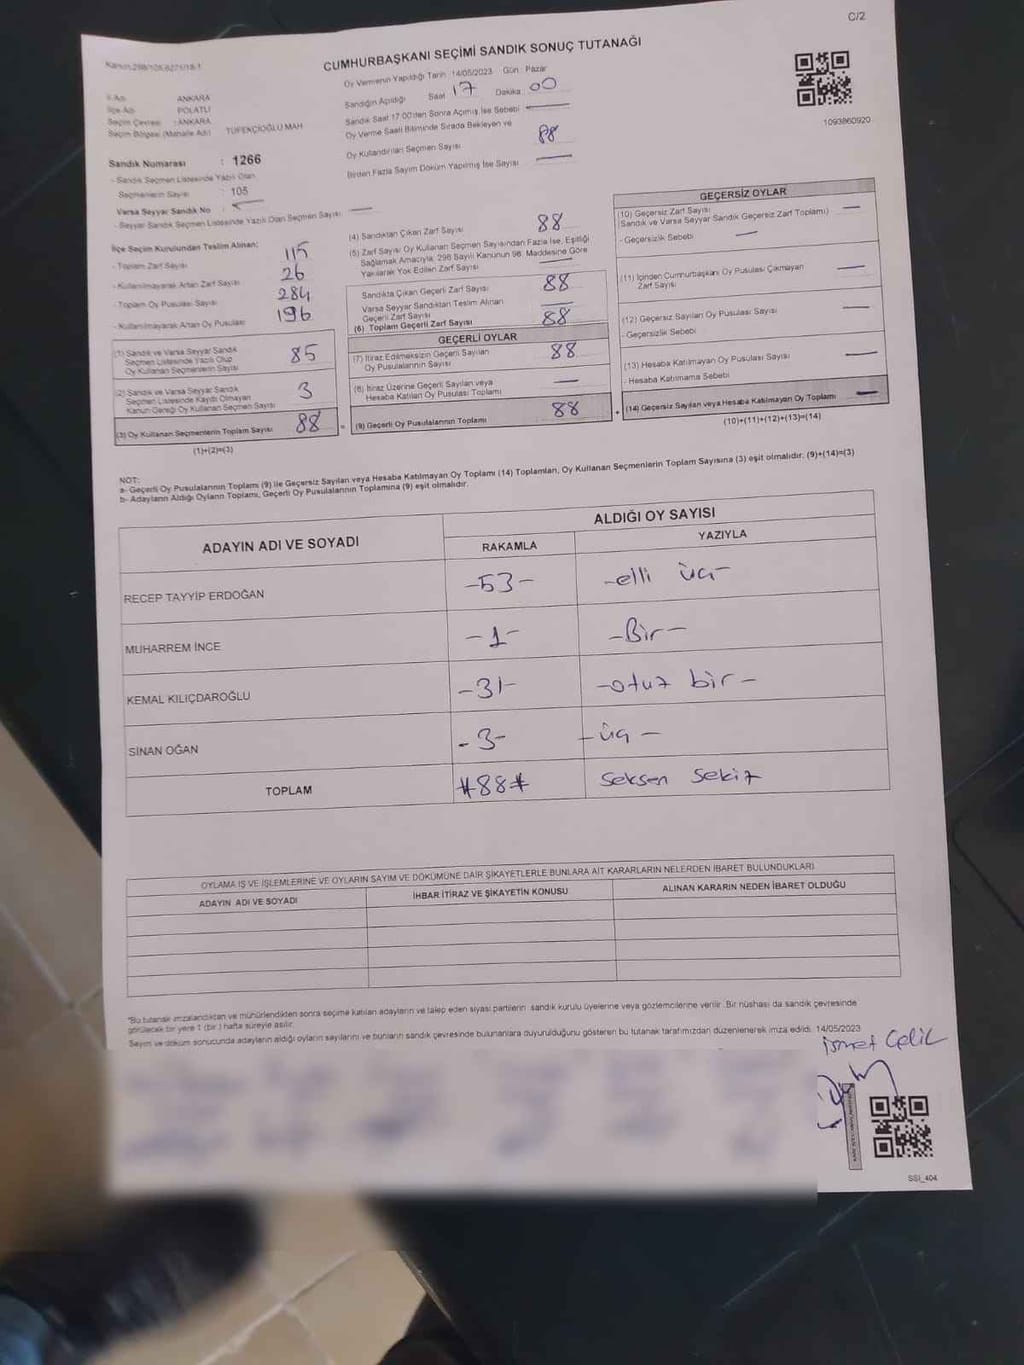 C/2
CUMHURBAŞKANI SEÇİMİ SANDIK SONUÇ TUTANAĞI
Oy Vermenin Yapıldığı Tarih 14/05/2023 Gün : Pazar
Sandığın Açıldığı Saat 17 Dakika 00
Sandık Saat 17:00'den Sonra Açımış İse Sebebi
Oy Verme Saati Bitiminde Sırada Bekleyen ve
Oy Kullandırılan Seçmen Sayısı 88
Birden Fazla Sayım Döküm Yapılmış İse Sayısı
1093860920
İl Adı : ANKARA
İlçe Adı : POLATLI
Seçim Çevresi : ANKARA
Seçim Bölgesi (Mahalle Adı) TÜFENÇİOĞLU MAH
Sandık Numarası : 1266
- Sandık Seçmen Listesinde Yazılı Olan
Seçmenlerin Sayısı : 105
Varsa Seyyar Sandık No :
- Seyyar Sandık Seçmen Listesinde Yazılı Olan Seçmen Sayısı
İlçe Seçim Kurulundan Teslim Alınan:
- Toplam Zarf Sayısı 115
- Kullanılmayarak Artan Zarf Sayısı 26
- Toplam Oy Pusulası Sayısı 284
- Kullanılmayarak Artan Oy Pusulası 196
(1) Sandık ve Varsa Seyyar Sandık
Seçmen Listesinde Yazılı Olup
Oy Kullanan Seçmenlerin Sayısı 85
(2) Sandık ve Varsa Seyyar Sandık
Seçmen Listesinde Kaydı Olmayan
Kanun Gereği Oy Kullanan Seçmen Sayısı 3
(3) Oy Kullanan Seçmenlerin Toplam Sayısı 88
(1)+(2)=(3)
(4) Sandıktan Çıkan Zarf Sayısı 88
(5) Zarf Sayısı Oy Kullanan Seçmen Sayısından Fazla İse, Eşitliği
Sağlamak Amacıyla, 298 Sayılı Kanunun 98. Maddesine Göre
Yakılarak Yok Edilen Zarf Sayısı
Sandıkta Çıkan Geçerli Zarf Sayısı 88
Varsa Seyyar Sandıktan Teslim Alınan
Geçerli Zarf Sayısı
(6) Toplam Geçerli Zarf Sayısı 88
GEÇERLİ OYLAR
(7) İtiraz Edilmeksizin Geçerli Sayılan
Oy Pusulalarının Sayısı 88
(8) İtiraz Üzerine Geçerli Sayılan veya
Hesaba Katılan Oy Pusulası Toplamı
(9) Geçerli Oy Pusulalarının Toplamı 88
GEÇERSİZ OYLAR
(10) Geçersiz Zarf Sayısı
(Sandık ve Varsa Seyyar Sandık Geçersiz Zarf Toplamı)
- Geçersizlik Sebebi
(11) İçinden Cumhurbaşkanı Oy Pusulası Çıkmayan
Zarf Sayısı
(12) Geçersiz Sayılan Oy Pusulası Sayısı
- Geçersizlik Sebebi
(13) Hesaba Katılmayan Oy Pusulası Sayısı
- Hesaba Katılmama Sebebi
(14) Geçersiz Sayılan veya Hesaba Katılmayan Oy Toplamı
(10)+(11)+(12)+(13)=(14)
NOT:
a- Geçerli Oy Pusulalarının Toplamı (9) ile Geçersiz Sayılan veya Hesaba Katılmayan Oy Toplamı (14) Toplamları, Oy Kullanan Seçmenlerin Toplam Sayısına (3) eşit olmalıdır. (9)+(14)=(3)
b- Adayların Aldığı Oyların Toplamı, Geçerli Oy Pusulalarının Toplamına (9) eşit olmalıdır.
ADAYIN ADI VE SOYADI
ALDIĞI OY SAYISI
RAKAMLA YAZIYLA
RECEP TAYYİP ERDOĞAN -53- -elli üç-
MUHARREM İNCE -1- -Bir-
KEMAL KILIÇDAROĞLU -31- -otuz bir-
SİNAN OĞAN -3- -üç-
TOPLAM #88# Seksen Sekiz
OYLAMA İŞ VE İŞLEMLERİNE VE OYLARIN SAYIM VE DÖKÜMÜNE DAİR ŞİKAYETLERLE BUNLARA AİT KARARLARIN NELERDEN İBARET BULUNDUKLARI
ADAYIN ADI VE SOYADI İHBAR İTİRAZ VE ŞİKAYETİN KONUSU ALINAN KARARIN NEDEN İBARET OLDUĞU
*Bu tutanak imzalandıktan ve mühürlendikten sonra seçime katılan adayların ve talep eden siyasi partilerin sandık kurulu üyelerine veya gözlemcilerine verilir. Bir nüshası da sandık çevresinde
görülecek bir yere 1 (bir ) hafta süreyle asılır.
Sayım ve döküm sonucunda adayların aldığı oyların sayılarını ve bunların sandık çevresinde bulunanlara duyurulduğunu gösteren bu tutanak tarafımızdan düzenlenerek imza edildi. 14/05/2023
ismet Çelik
SSI_404